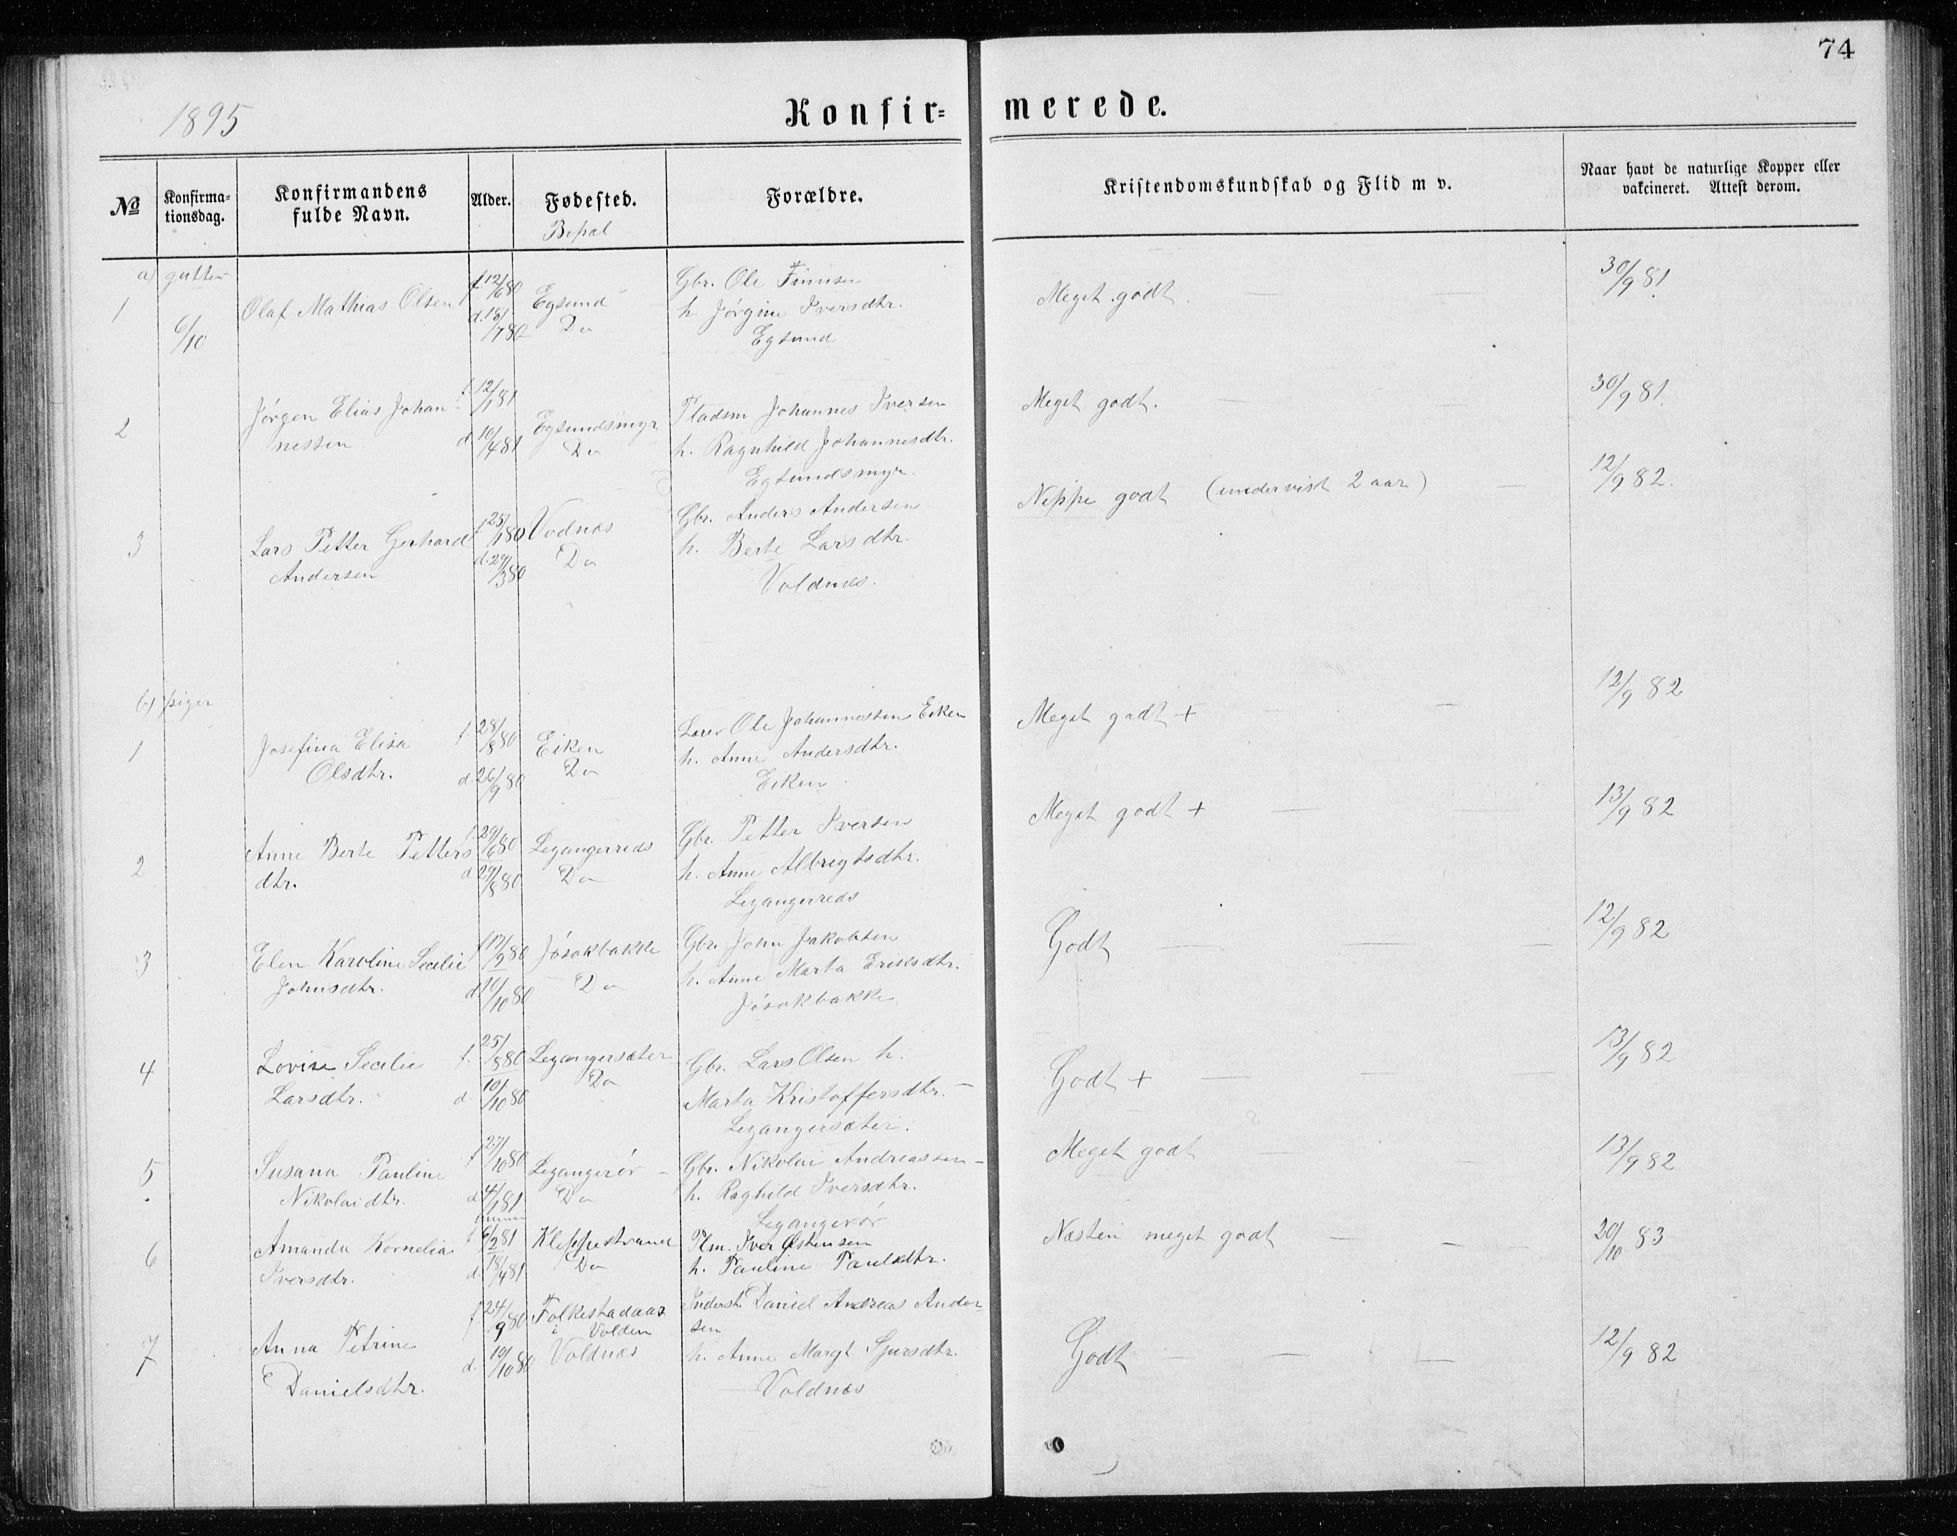 74
1895
Konfir= merede.
№
Konfirma-
tionsdag.
Konfirmandens
fulde Navn.
Alder.
Fødested.
Forældre.
Kristendomskundskab og Flid m v.
Naar havt de naturlige Kopper eller
vakcineret. Attest derom.
a) gutter
1
6/10
Olaf Mathias Olsen
f. 12/6 80
d. 18/7 80
Egsund
Do
Gbr. Ole
h. Jørgine Iversdtr.
Egsund
Meget godt.
30/9 81.
2
Jørgen Elias Johan-
nessen
f. 12/1 81
d. 10/4 81
Egsundsmyr
Do
Pladsm Johannes Iversen
h. Ragnhild Johannesdtr.
Egsundsmyr.
Meget godt.
30/9 81.
3
Lars Petter Gerhard
Andersen
f. 25/1 80
d. 29/3 80
Vodnæs
Do
Gbr. Anders Andersen
h. Berte Larsdtr.
Voldnæs.
Neppe godt (undervist 2 aar)
12/9 82.
b) piger
1
Josefina Elisa
Olsdtr.
f. 28/8 80
d. 26/9 80
Eiken
Do
Ole Johannessen Eiken
h. Anne Andersdtr.
Eiken
Meget godt +
12/9 82
2
Anne Berte Petters
dtr.
f. 29/6 80
d. 29/8 80
Legangerreds
Do
Gbr. Petter Iversen
h. Anne Albrigtsdtr.
Legangerreds
Meget godt +
13/9 82
3
Elen Karoline Secilie
Johnsdtr.
f. 17/9 80
d. 10/10 80
Jøsokbakke
Do
Gbr. John Jakobsen
h. Anne Marta Eriksdtr.
Jøsokbakke
Godt
12/9 82
4
Lovise Secilie
Larsdtr.
f. 25/8 80
d 10/10 80
Legangersæter
Do
Gbr. Lars Olsen h.
Marta Kristoffersdtr.
Legangersæter.
Godt +
13/9 82
5
Susana Pauline
Nikolaidtr.
f 27/10 80
d 4/1 81
Legangerør
Do
Gbr. Nikolai Andreassen
h. Raghild Iversdtr.
Legangerør
Meget godt
13/9 82
6
Amanda Kornelia
Iversdtr.
f. 6/2 81
d. 18/4 81
Kleppestrand
Do
Plm. Iver Østensen
h. Pauline Paulsdtr.
Næsten meget godt
20/10 83
7
Anna Petrine
Danielsdtr.
f 24/9 80
d. 10/10 80
Folkestadaas
i Volden
Voldnæs
Inderst. Daniel Andreas Ander-
sen
h. Anne Margt Sjursdtr.
Voldnæs
Godt
12/9 82